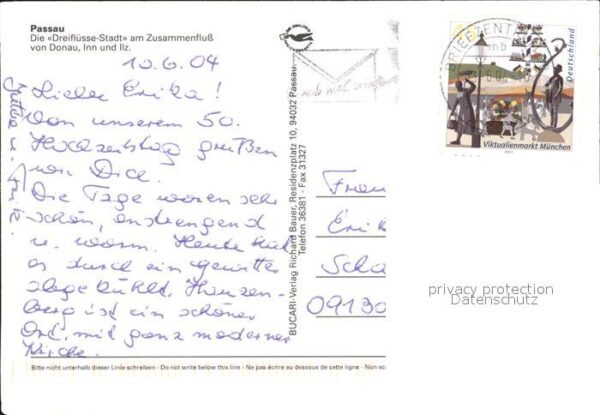 Passau
Die «Dreiflüsse-Stadt» am Zusammenfluß
von Donau, Inn und Ilz.
10.6.04
Liebe Erika!
Von unserem 50.
Hochzeitstag grüßen
wir Dich.
Die Tage waren sehr
schön, anstrengend
u. warm. Heute hat
es durch ein Gewitter
abgekühlt. Hauzen-
berg ist ein schöner
Ort, mit ganz moderner
Kirche.
Bitte nicht unterhalb dieser Linie schreiben - Do not write below this line - Ne pas écrire au dessous de cette ligne - Non sc
BUCARI-Verlag Richard Bauer, Residenzplatz 10, 94032 Passau
Telefon 36381 - Fax 31327
BRIEFZENT
mb
Deutschland
Viktualienmarkt München
Frau
Erik
Scha
09130
privacy protection
Datenschutz